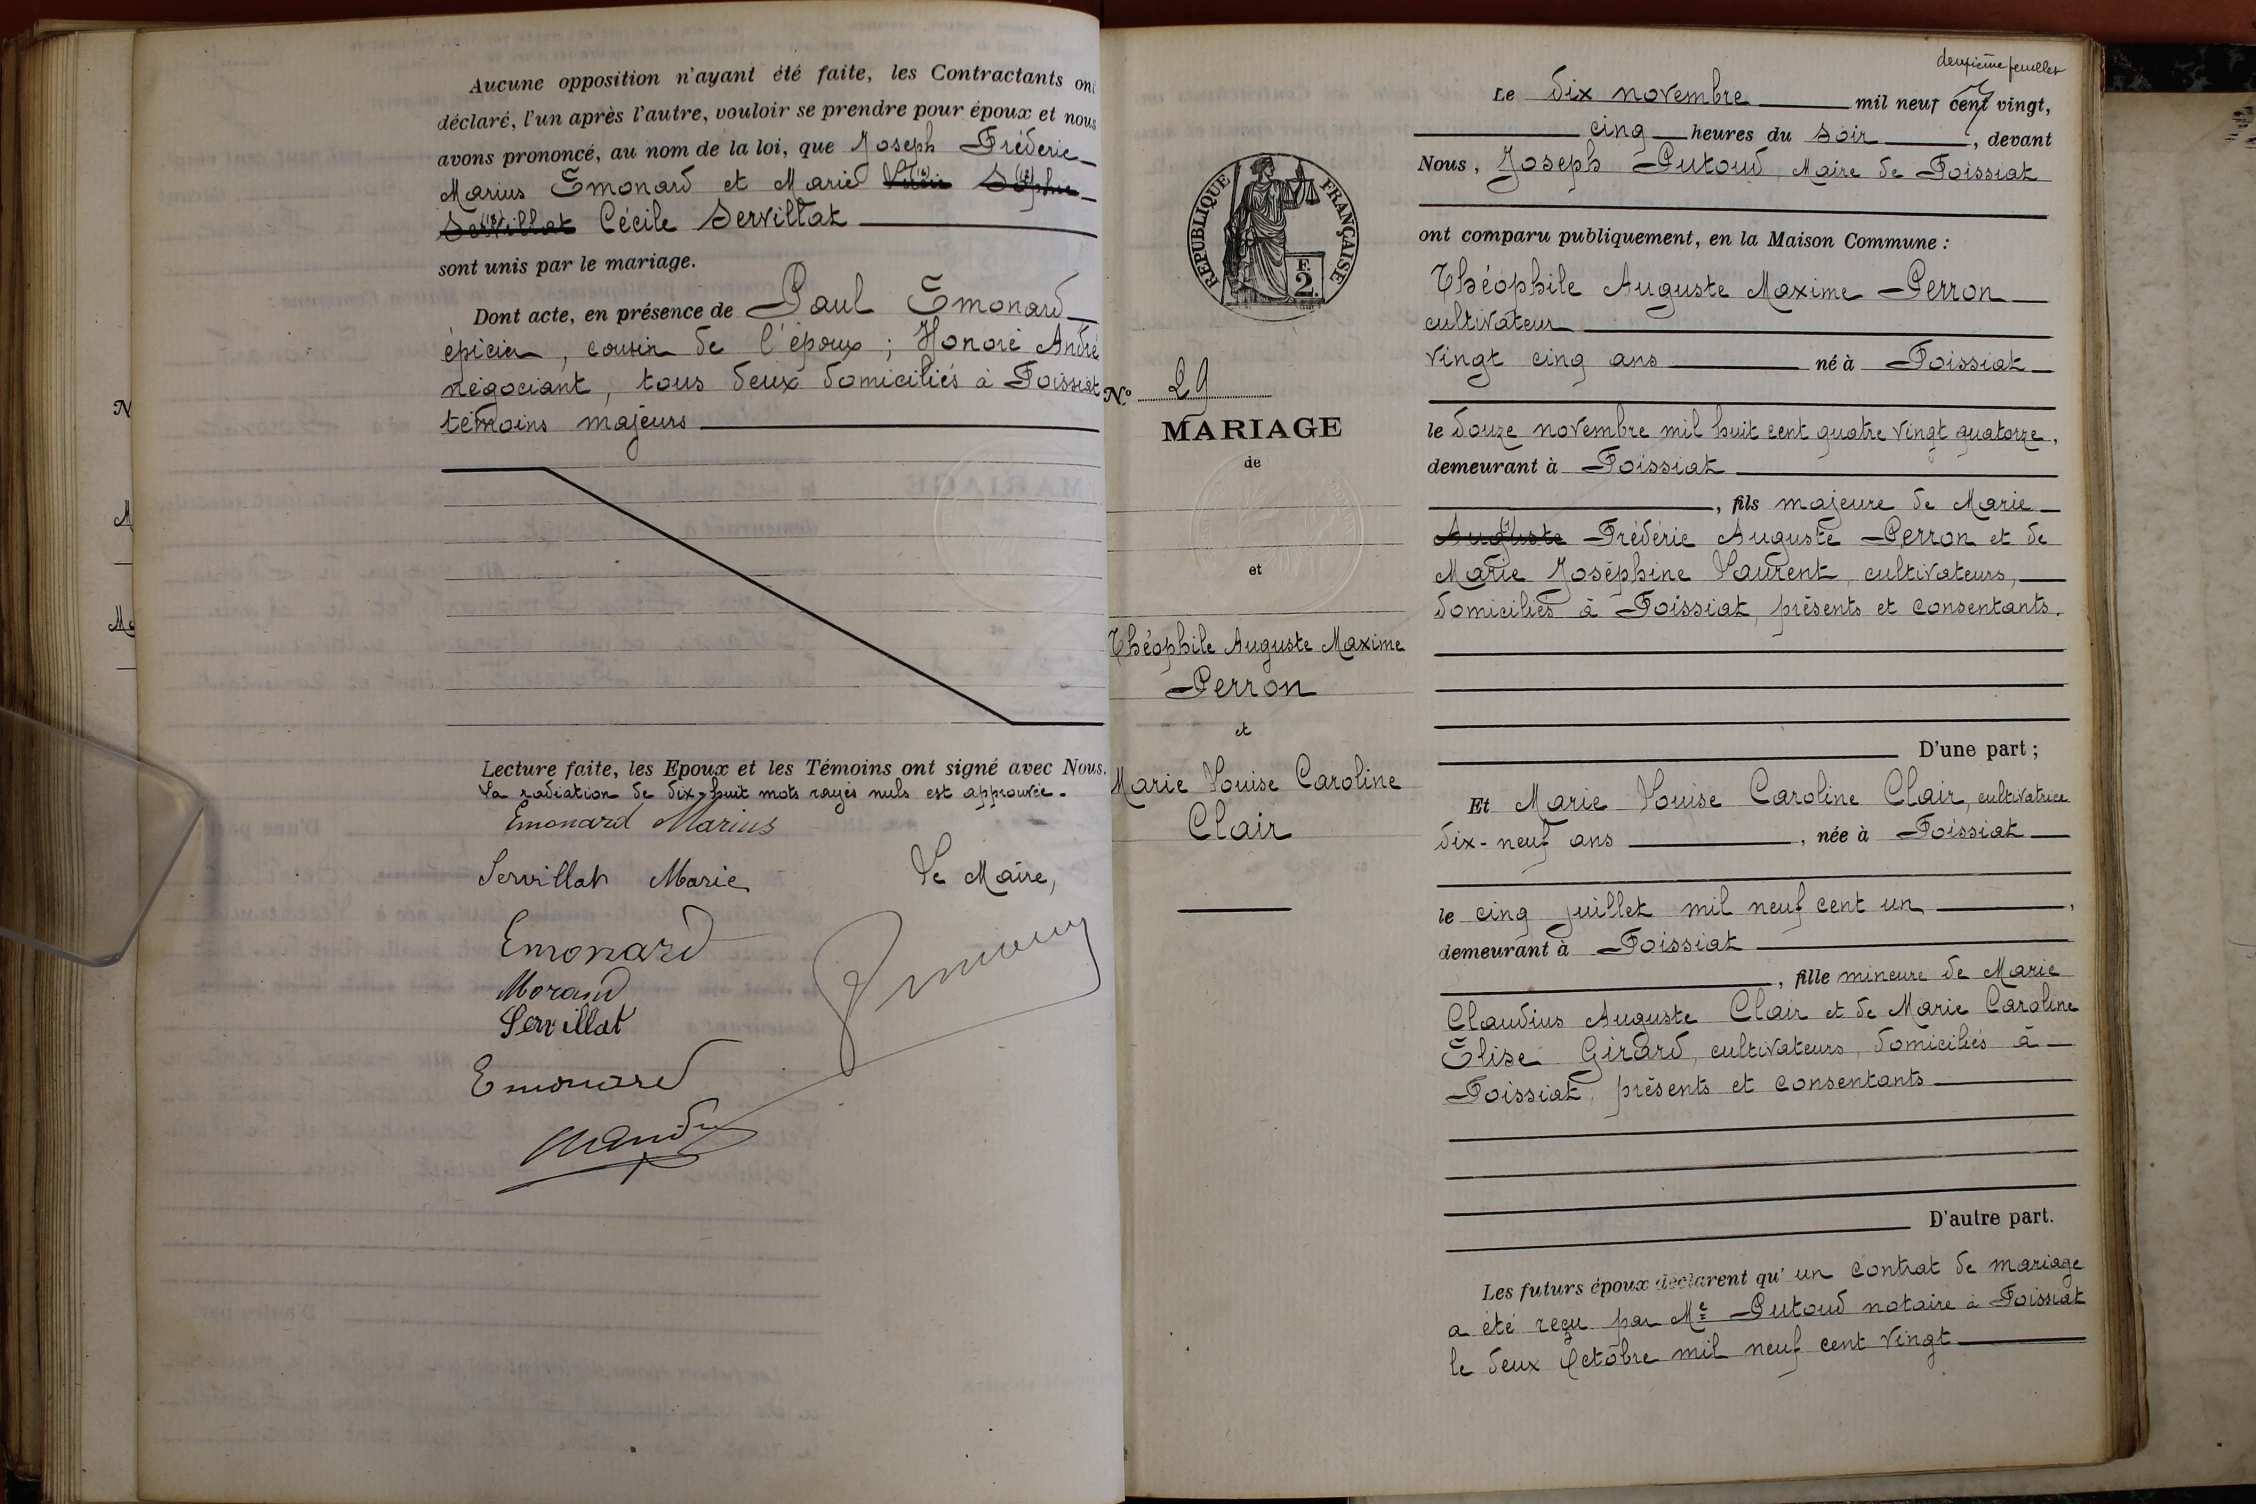 Aucune opposition n'ayant été faite, les Contractants ont
déclaré, l'un après l'autre, vouloir se prendre pour époux et nous
avons prononcé, au nom de la loi, que Joseph Fréderic
Marius Emonard et Marie Sophie
Servillat Cécile Servillat
sont unis par le mariage.
Dont acte, en présence de Paul Emonard
épicier, cousin de l'époux; Honoré André
négociant, tous deux domiciliés à Foissiat
témoins majeurs
Lecture faite, les Epoux et les Témoins ont signé avec Nous.
La radiation de dix-huit mots rayés nuls est approuvée.
Emonard Marius
Servillat Marie Le Maire,
Emonard
Morand
Servillat
Emonard
deuxième feuillet
Le dix novembre mil neuf cent vingt,
cinq heures du soir, devant
Nous, Joseph Putoud, Maire de Foissiat
ont comparu publiquement, en la Maison Commune :
Théophile Auguste Maxime Perron
cultivateur
vingt cinq ans né à Foissiat
le douze novembre mil huit cent quatre vingt quatorze,
demeurant à Foissiat
, fils majeure de Marie
Auguste Frédéric Auguste Perron et de
Marie Joséphine Laurent, cultivateurs,
domiciliés à Foissiat, présents et consentants.
D'une part ;
Et Marie Louise Caroline Clair, cultivatrice
dix-neuf ans, née à Foissiat
le cinq juillet mil neuf cent un,
demeurant à Foissiat
, fille mineure de Marie
Claudius Auguste Clair et de Marie Caroline
Elise Girard, cultivateurs, domiciliés à
Foissiat, présents et consentants
D'autre part.
Les futurs époux déclarent qu'un contrat de mariage
a été reçu par Me Putoud notaire à Foissiat
le deux Octobre mil neuf cent vingt
REPUBLIQUE FRANÇAISE
F.
2.
No 29
MARIAGE
de
et
Théophile Auguste Maxime
Perron
et
Marie Louise Caroline
Clair